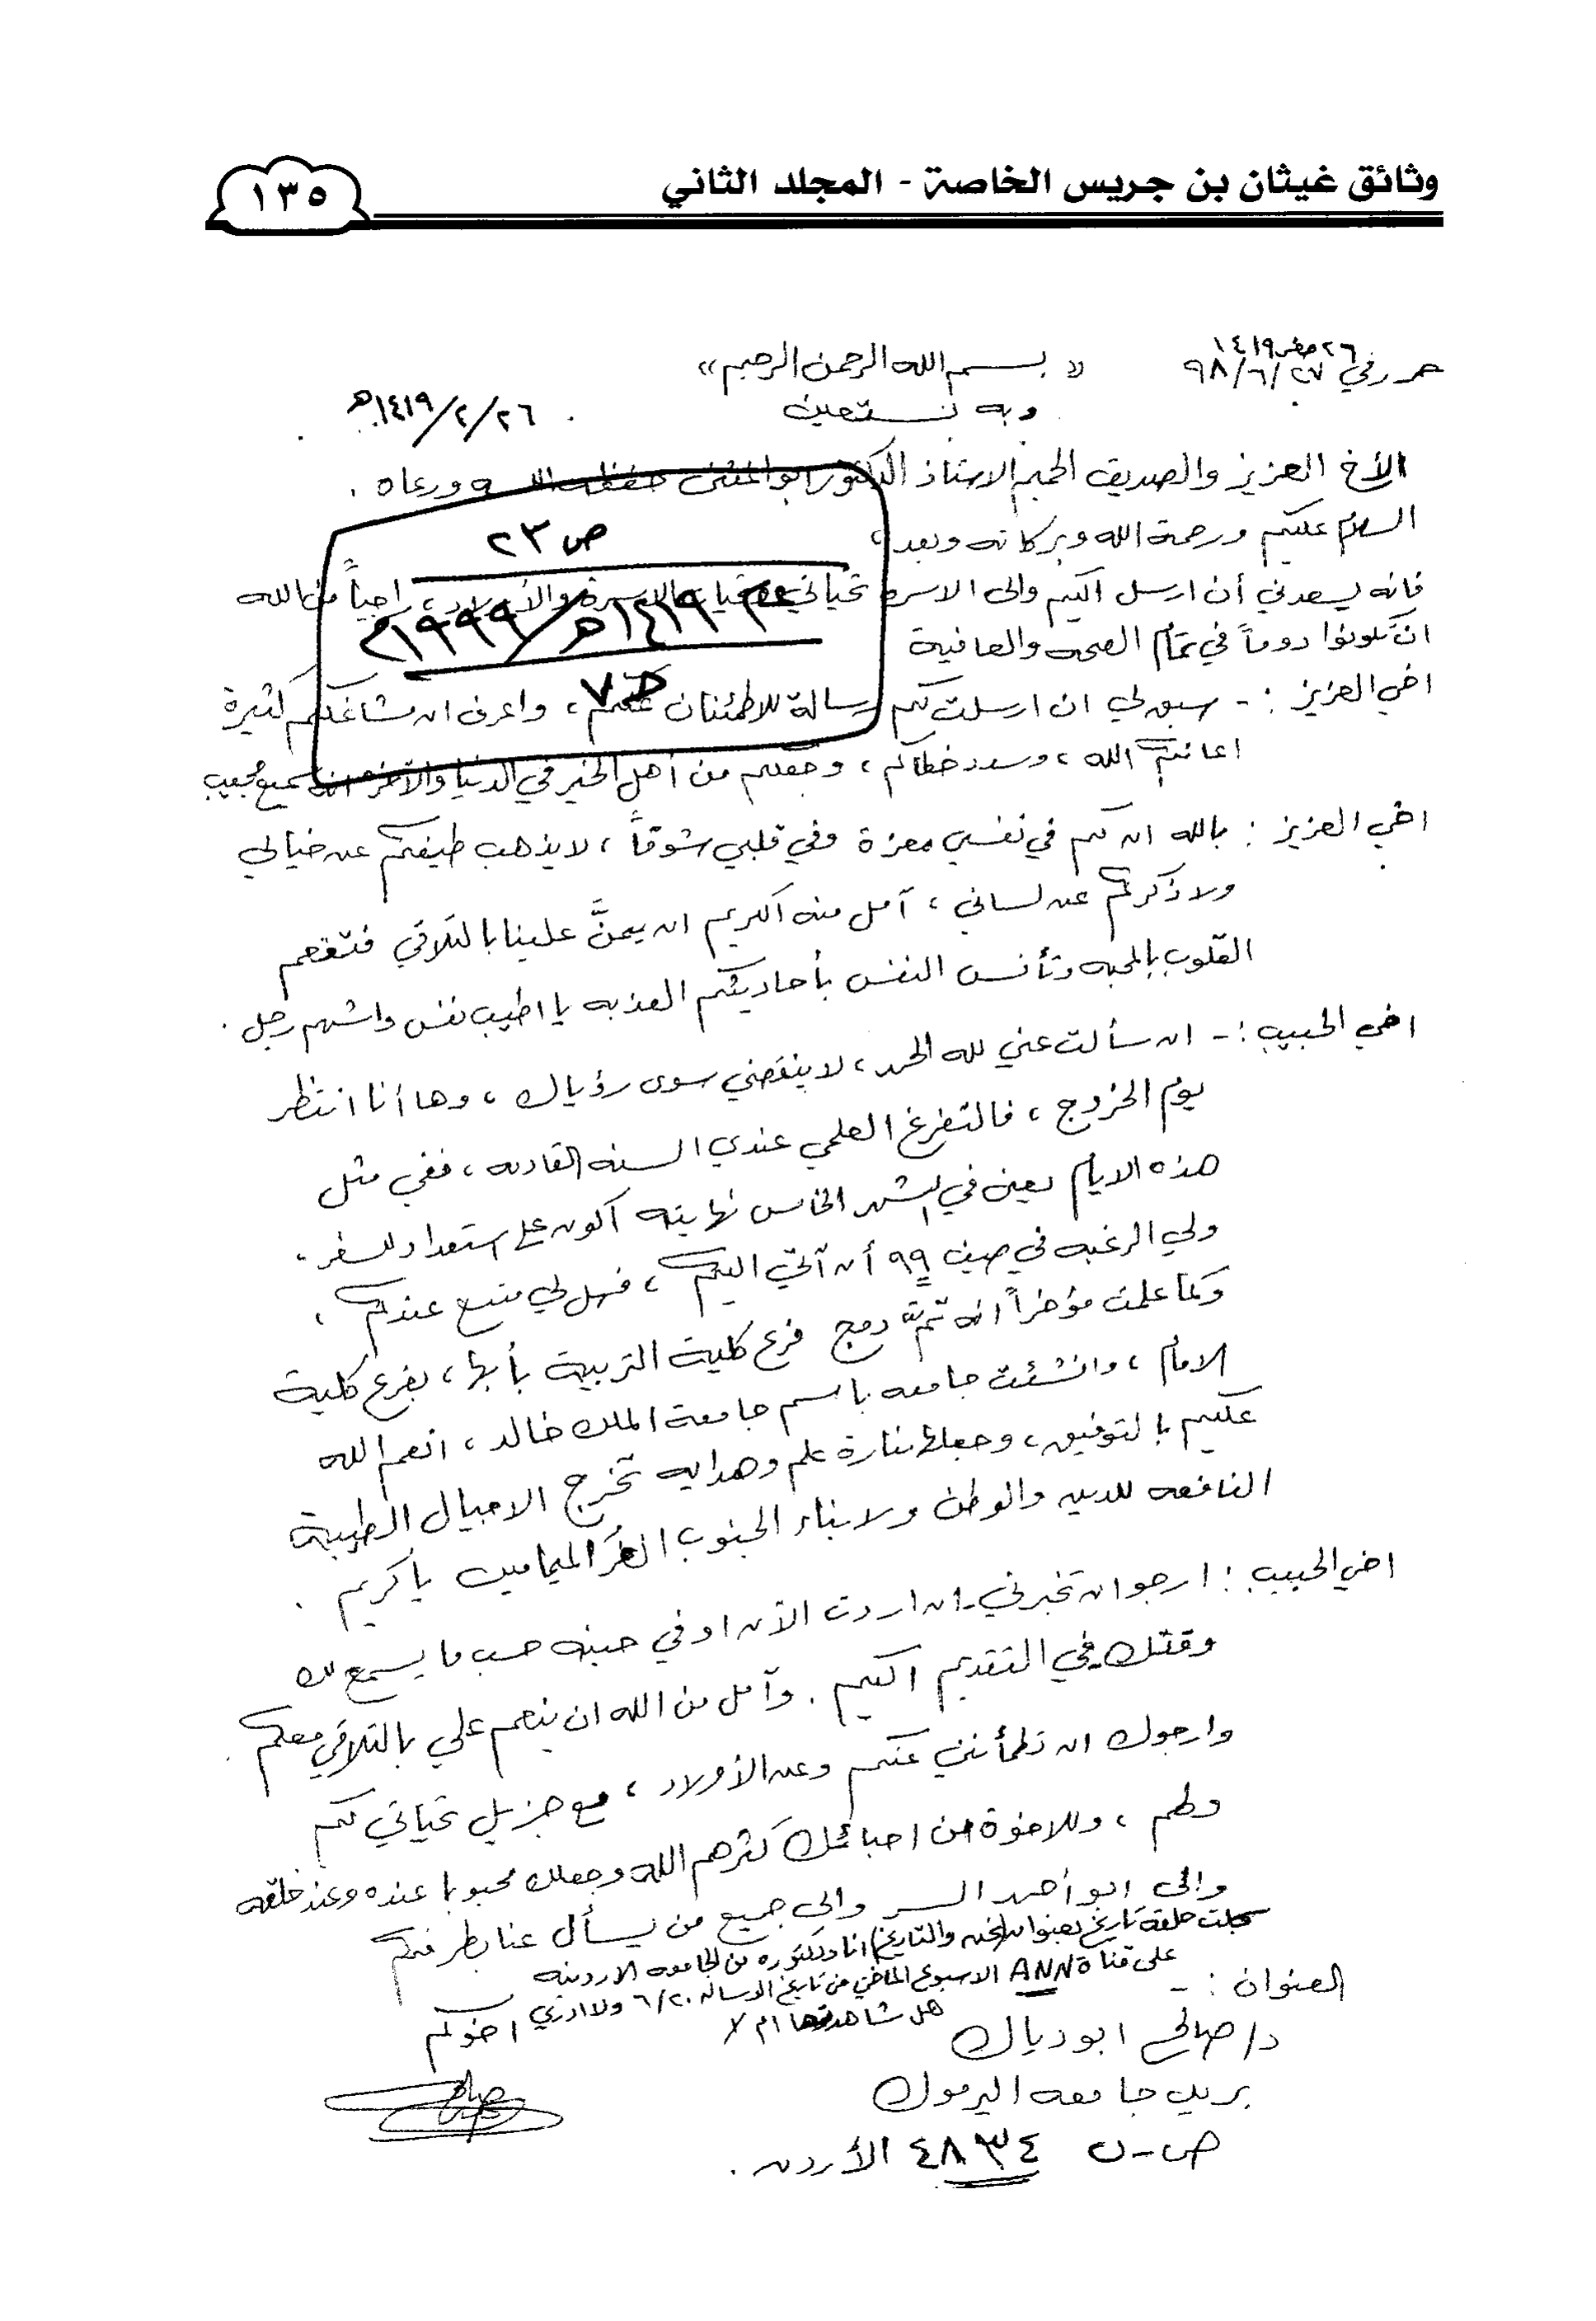 وثائق غيثان بن جريس الخاصة - المجلد الثاني
١٣٥
٢٦ صفر ١٤١٩
حرر في ٩٨/٦/٢٧
« بسم الله الرحمن الرحيم »
وبه نستعين
١٤١٩/٢/٢٦هـ
الأخ العزيز والصديق الحميم الاستاذ الدكتور ابو المثنى حفظه الله ورعاه .
السلام عليكم ورحمة الله وبركاته وبعد ،
ص ٢٣
فانه يسعدني أن ارسل اليكم والى الاسره تحياتي راجياً من الله
١٤١٩هـ/١٩٩٩م
ان تكونوا دوماً في تمام الصحه والعافية
ح٧
اخي العزيز :- سبق لي ان ارسلت لكم رسالة للاطمئنان عنكم ، واعرف ان مشاغلكم كثيرة
اعانكم الله ، وسدد خطاكم ، وجعلكم من أهل الخير في الدنيا والآخرة انه سميع مجيب
اخي العزيز : بالله ان لكم في نفسي معزة وفي قلبي شوقاً ، لا يذهب طيفكم عن خيالي
ولا ذكركم عن لساني ، آمل منه الكريم ان يمنَّ علينا بالتلاقي فتفعم
القلوب بالمحبه وتأنس النفس بأحاديثكم العذبه يا اطيب نفس واشهم رجل .
اخي الحبيب :- ان سألت عني لله الحمد ، لا ينقصني سوى رؤياك ، وها أنا انتظر
يوم الخروج ، فالتفرغ العلمي عندي السنه القادمه ، ففي مثل
هذه الايام يعني في الشهر الخامس نهايته اكون على استعداد للسفر ،
ولي الرغبه في صيف ٩٩ أن آتي اليكم ، فهل لي متسع عندكم ،
وكما علمت مؤخراً انه تمَّ دمج فرع كلية التربية بأبها ، بفرع كلية
الامام ، وانشئت جامعه باسم جامعة الملك خالد ، انعم الله
عليكم بالتوفيق ، وجعلها منارة علم وهدايه تخرج الاجيال الطيبة
النافعه للدين والوطن ولابناء الجنوب الغُر الميامين يا كريم .
اخي الحبيب : ارجو ان تخبرني ان اردت الآن او في حينه حسب ما يسمح لك
وقتك في التقديم اليكم . وآمل من الله ان ينعم علي بالتلاقي معكم .
وارجوك ان تطمأنني عنكم وعن الأولاد ، مع جزيل تحياتي لكم
ولهم ، وللاخوة من احبائك كثرهم الله وجعلك محبوبا عنده وعند خلقه
والى ابو أحمد والى جميع من يسأل عنا بطرفكم
سجلت حلقة تاريخ بعنوان والتاريخ) انا ودكتوره من الجامعه الاردنيه
على قناة ANN الاسبوع الماضي من تاريخ الرساله ٦/٢٠ ولا ادري
هل شاهدتها ام لا
العنوان :-
اخوكم
د/ صالح ابو دياك
صالح
بريد جامعه اليرموك
ص-ب ٤٨٣٤ الأردن .